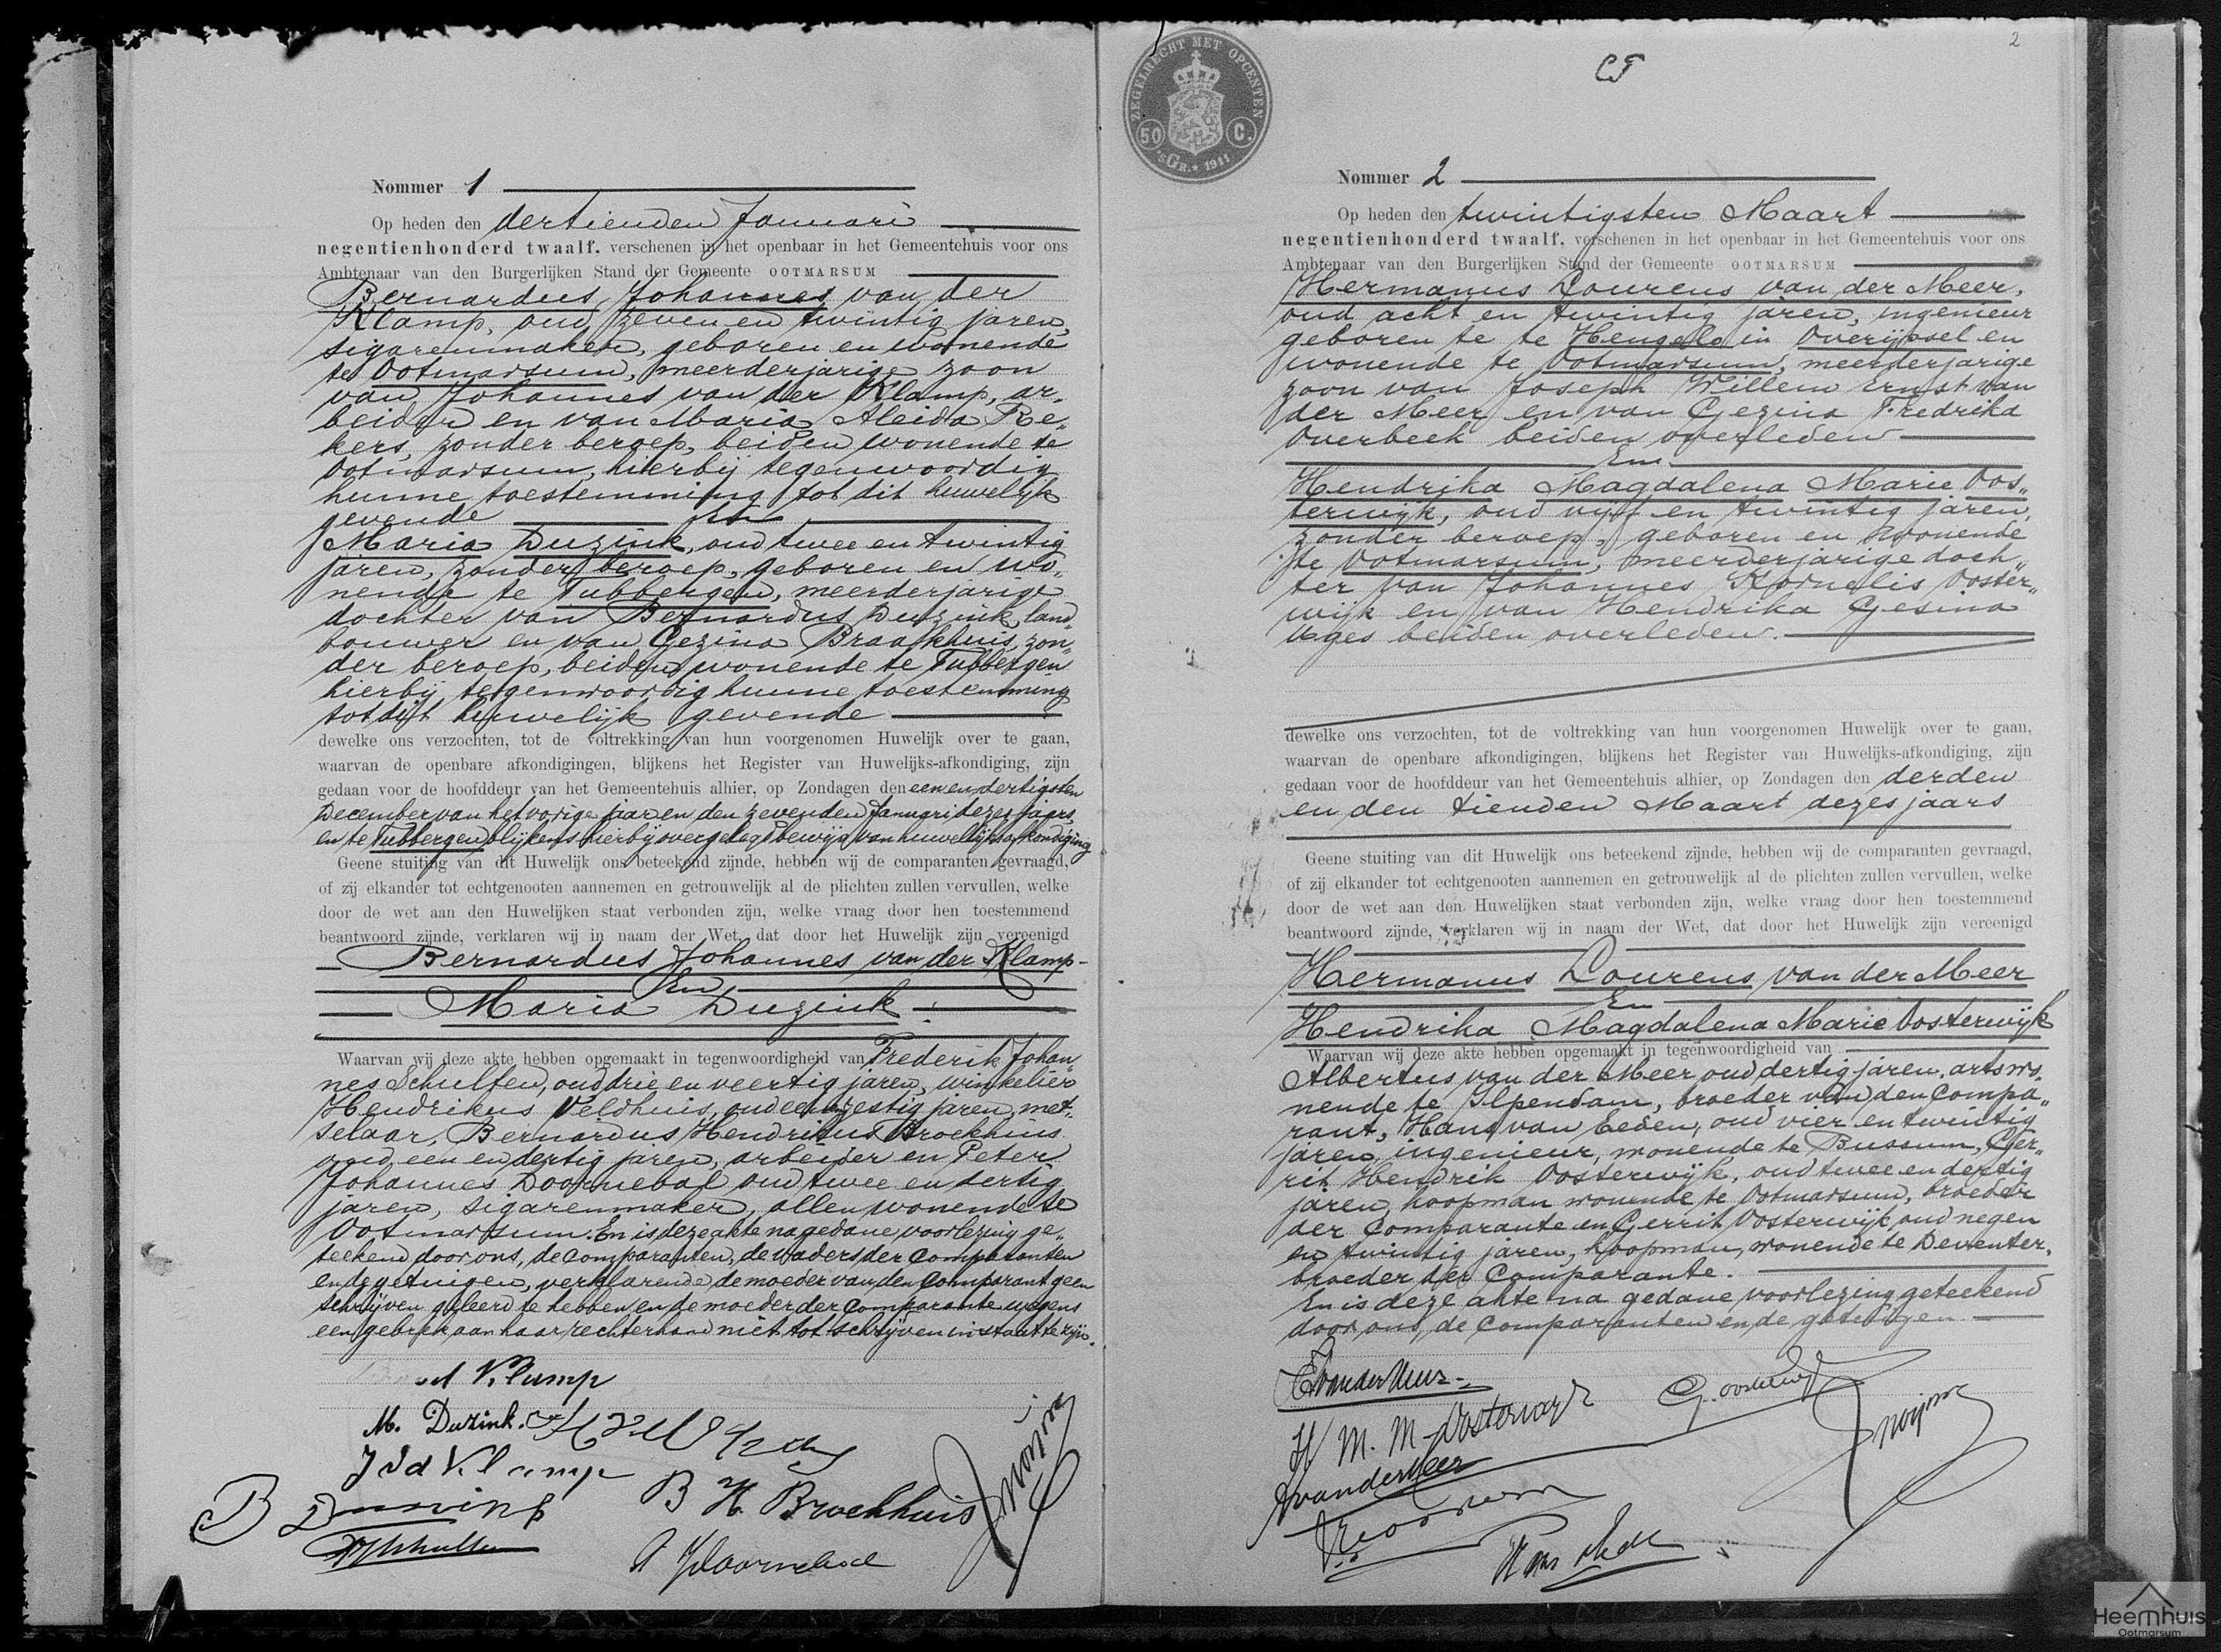 Nommer 1
Op heden den dertienden Januari
negentienhonderd twaalf, verschenen in het openbaar in het Gemeentehuis voor ons
Ambtenaar van den Burgerlijken Stand der Gemeente OOTMARSUM
Bernardus Johannes van der
Klamp, oud zeven en twintig jaren,
sigarenmaker, geboren en wonende
te Ootmarsum, meerderjarige zoon
van Johannes van der Klamp, ar„
beider en van Maria Aleida Re„
kers, zonder beroep, beiden wonende te
Ootmarsum, hierbij tegenwoordig
hunne toestemming tot dit huwelijk
gevende En
Maria Duzink, oud twee en twintig
jaren, zonder beroep, geboren en wo„
nende te Tubbergen, meerderjarige
dochter van Bernardus Duzink, land„
bouwer en van Gezina Braakhuis, zon„
der beroep, beiden wonende te Tubbergen
hierbij tegenwoordig hunne toestemming
tot dit huwelijk gevende
dewelke ons verzochten, tot de voltrekking van hun voorgenomen Huwelijk over te gaan,
waarvan de openbare afkondigingen, blijkens het Register van Huwelijks-afkondiging, zijn
gedaan voor de hoofddeur van het Gemeentehuis alhier, op Zondagen den een en dertigsten
December van het vorige jaar en den zevenden Januari dezes jaars,
en te Tubbergen blijkens hierbij overgelegd bewijs van huwelijksafkondiging
Geene stuiting van dit Huwelijk ons beteekend zijnde, hebben wij de comparanten gevraagd,
of zij elkander tot echtgenooten aannemen en getrouwelijk al de plichten zullen vervullen, welke
door de wet aan den Huwelijken staat verbonden zijn, welke vraag door hen toestemmend
beantwoord zijnde, verklaren wij in naam der Wet, dat door het Huwelijk zijn vereenigd
Bernardus Johannes van der Klamp
En
Maria Duzink
Waarvan wij deze akte hebben opgemaakt in tegenwoordigheid van Frederik Johan„
nes Schulten, oud drie en veertig jaren, winkelier
Hendrikus Veldhuis, oud een en zestig jaren, met„
selaar, Bernardus Hendrikus Broekhuis
oud een en dertig jaren, arbeider en Peter
Johannes Doornebal oud twee en dertig
jaren, sigarenmaker, allen wonende te
Ootmarsum. En is deze akte na gedane voorlezing ge„
teekend door ons, de comparanten, de vaders der comparanten
en de getuigen, verklarende de moeder van den Comparant geen
schrijven geleerd te hebben en de moeder der Comparante wegens
een gebrek aan haar rechterhand niet tot schrijven in staat te zijn.
vd Klamp
M. Duzink.
J v d Klamp
B Duzink
B H. Broekhuis
FJSchulten
P J Doornebal
2
ZEGELRECHT MET OPCENTEN
50 C.
'sGR. 1911
Nommer 2
Op heden den twintigsten Maart
negentienhonderd twaalf, verschenen in het openbaar in het Gemeentehuis voor ons
Ambtenaar van den Burgerlijken Stand der Gemeente OOTMARSUM
Hermanus Lourens van der Meer,
oud acht en twintig jaren, ingenieur
geboren te te Hengelo in Overijssel en
wonende te Ootmarsum, meerderjarige
zoon van Joseph Willem Ernst van
der Meer en van Gezina Fredrika
Overbeek beiden overleden
En
Hendrika Magdalena Marie Oos„
terwijk, oud vijf en twintig jaren,
zonder beroep, geboren en wonende
te Ootmarsum, meerderjarige doch„
ter van Johannes Kornelis Ooster„
wijk en van Hendrika Gesina
Vages beiden overleden.
dewelke ons verzochten, tot de voltrekking van hun voorgenomen Huwelijk over te gaan,
waarvan de openbare afkondigingen, blijkens het Register van Huwelijks-afkondiging, zijn
gedaan voor de hoofddeur van het Gemeentehuis alhier, op Zondagen den derden
en den tienden Maart dezes jaars
Geene stuiting van dit Huwelijk ons beteekend zijnde, hebben wij de comparanten gevraagd,
of zij elkander tot echtgenooten aannemen en getrouwelijk al de plichten zullen vervullen, welke
door de wet aan den Huwelijken staat verbonden zijn, welke vraag door hen toestemmend
beantwoord zijnde, verklaren wij in naam der Wet, dat door het Huwelijk zijn vereenigd
Hermanus Lourens van der Meer
En
Hendrika Magdalena Marie Oosterwijk
Waarvan wij deze akte hebben opgemaakt in tegenwoordigheid van
Albertus van der Meer oud dertig jaren, arts wo„
nende te Ilpendam, broeder van den Compa„
rant, Hans van Eeden, oud vier en twintig
jaren, ingenieur, wonende te Bussum, Ger„
rit Hendrik Oosterwijk, oud twee en dertig
jaren, koopman wonende te Ootmarsum, broeder
der Comparante en Gerrit Oosterwijk oud negen
en twintig jaren, koopman, wonende te Deventer,
broeder der Comparante.
En is deze akte na gedane voorlezing geteekend
door ons, de Comparanten en de getuigen
H M. M Oosterwijk
G. Oosterwijk
Avandermeer
Heemhuis
Ootmarsum